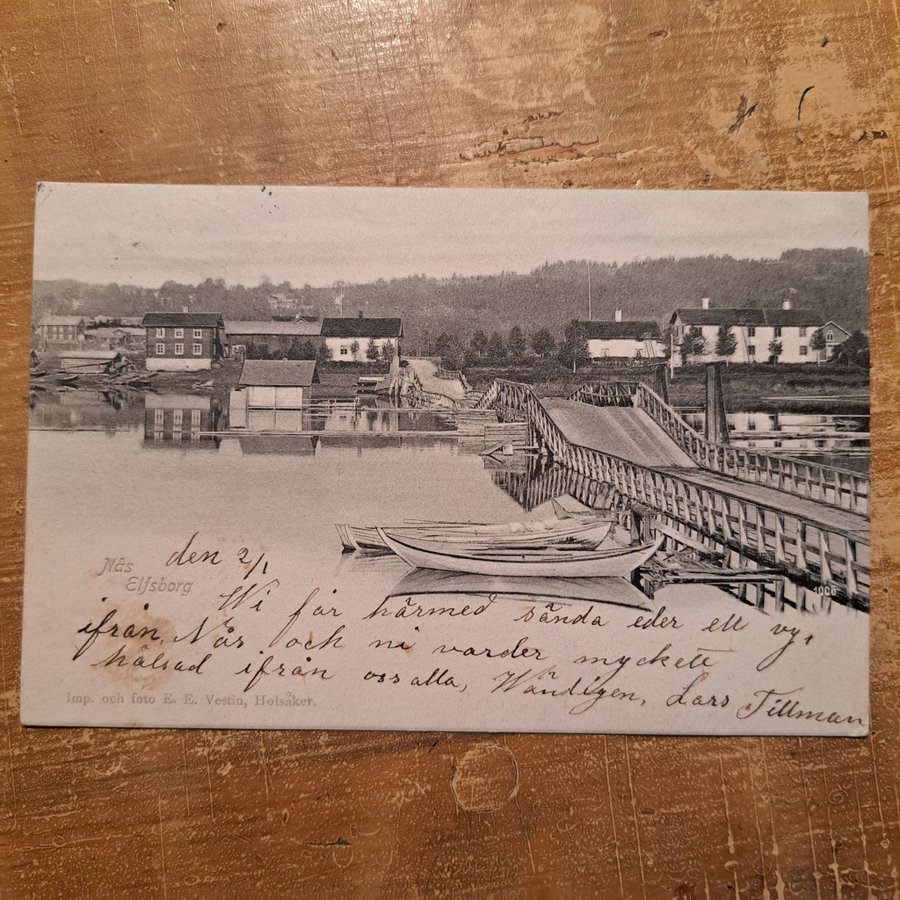 Nås
Elfsborg
1006
den 2/1
Wi får härmed sända eder ett vy,
ifrån, Nås och ni varder myckett
hälsad ifrån oss alla, Wänligen, Lars Tillman
Imp. och foto E. E. Vestin, Holsåker.